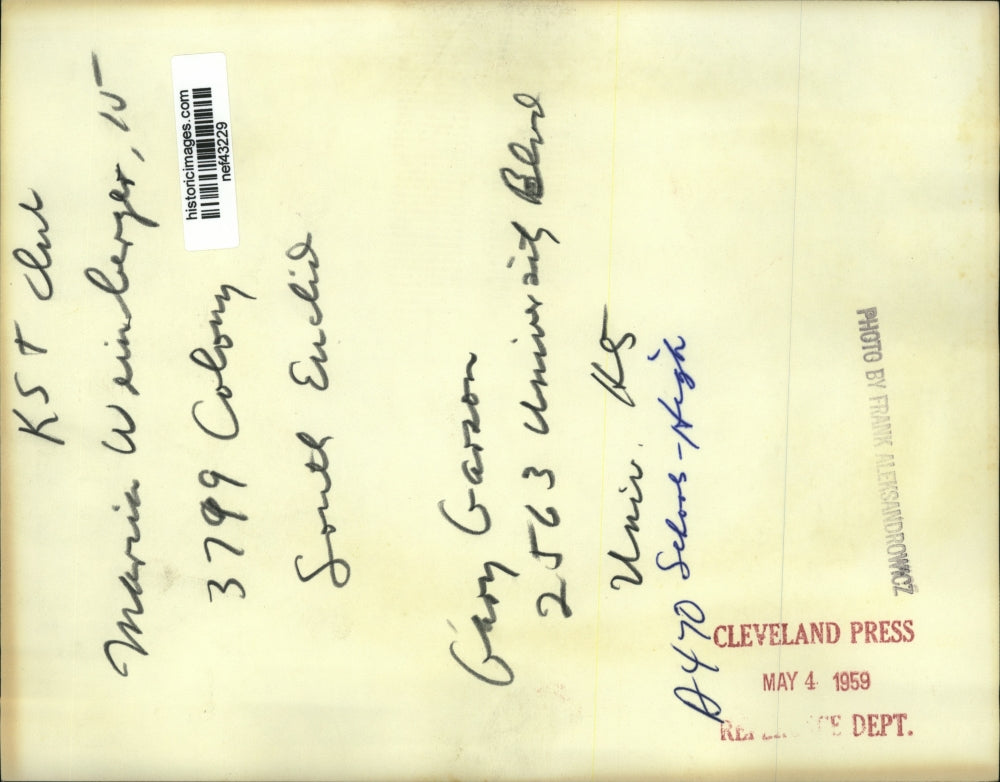 KST Club
Marcia Weinberger, 15
3799 Colony
South Euclid
Gary Garson
2563 University Blvd
Univ. Hts
A470 Schools-High
historicimages.com
nef43229
PHOTO BY FRANK ALEKSANDROWICZ
CLEVELAND PRESS
MAY 4 1959
DEPT.